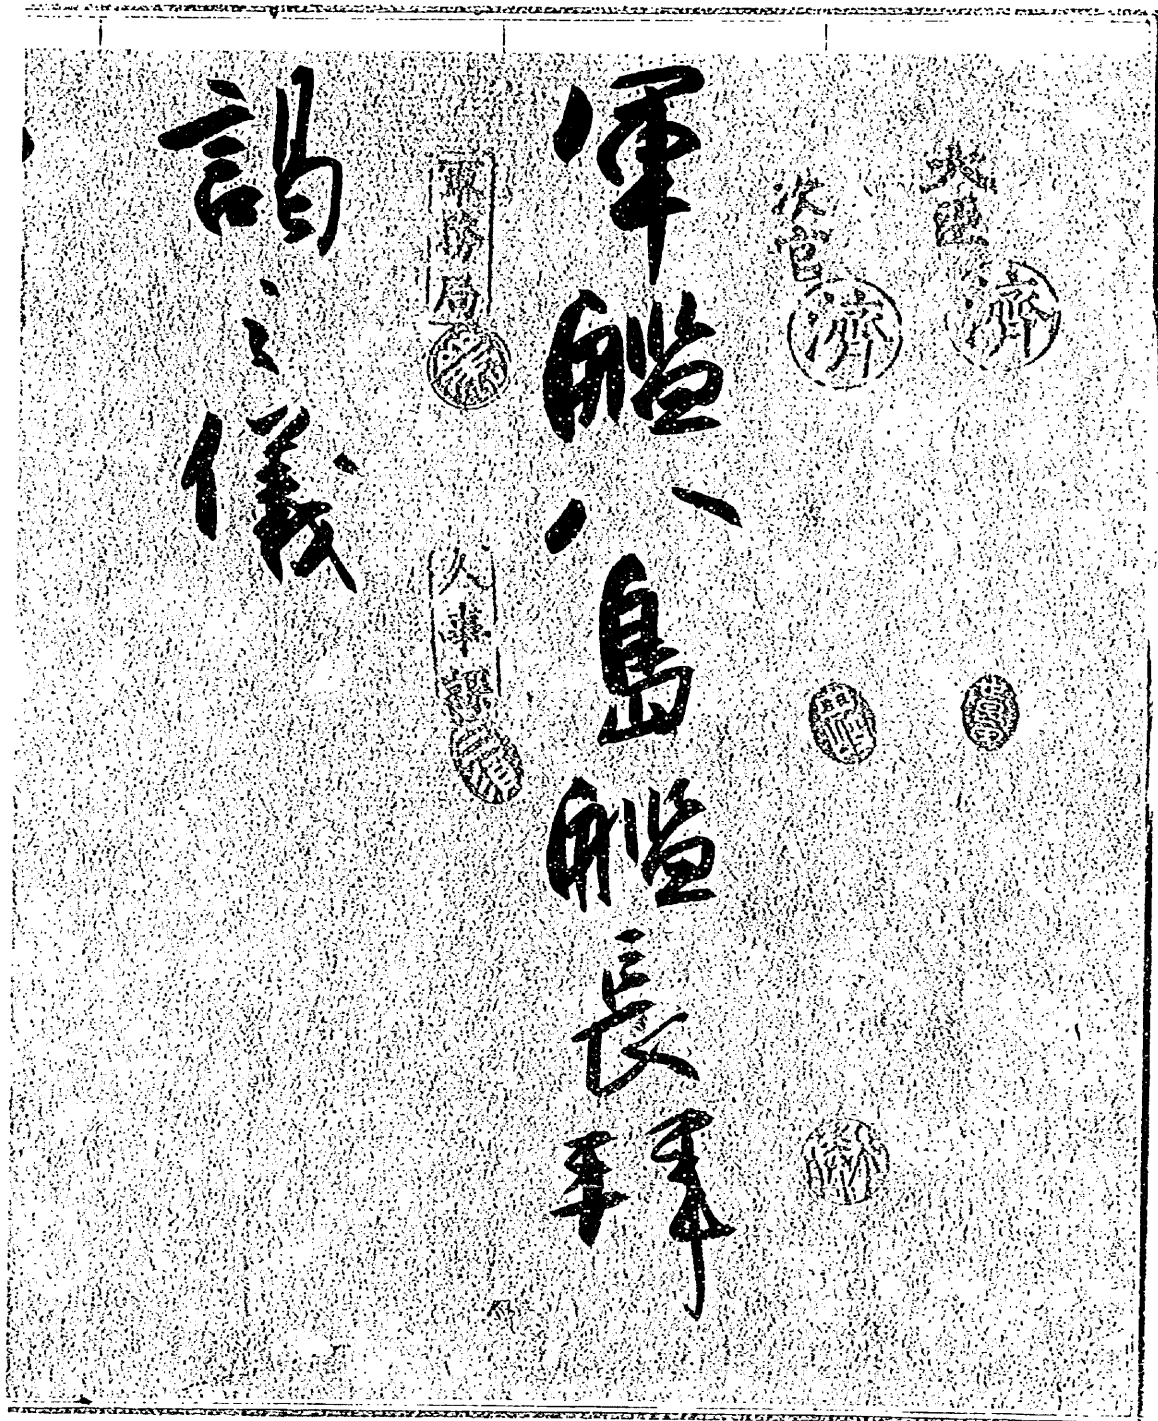 大臣 濟
次官 濟
軍艦八島艦長拜
軍務局
人事課
謁之儀